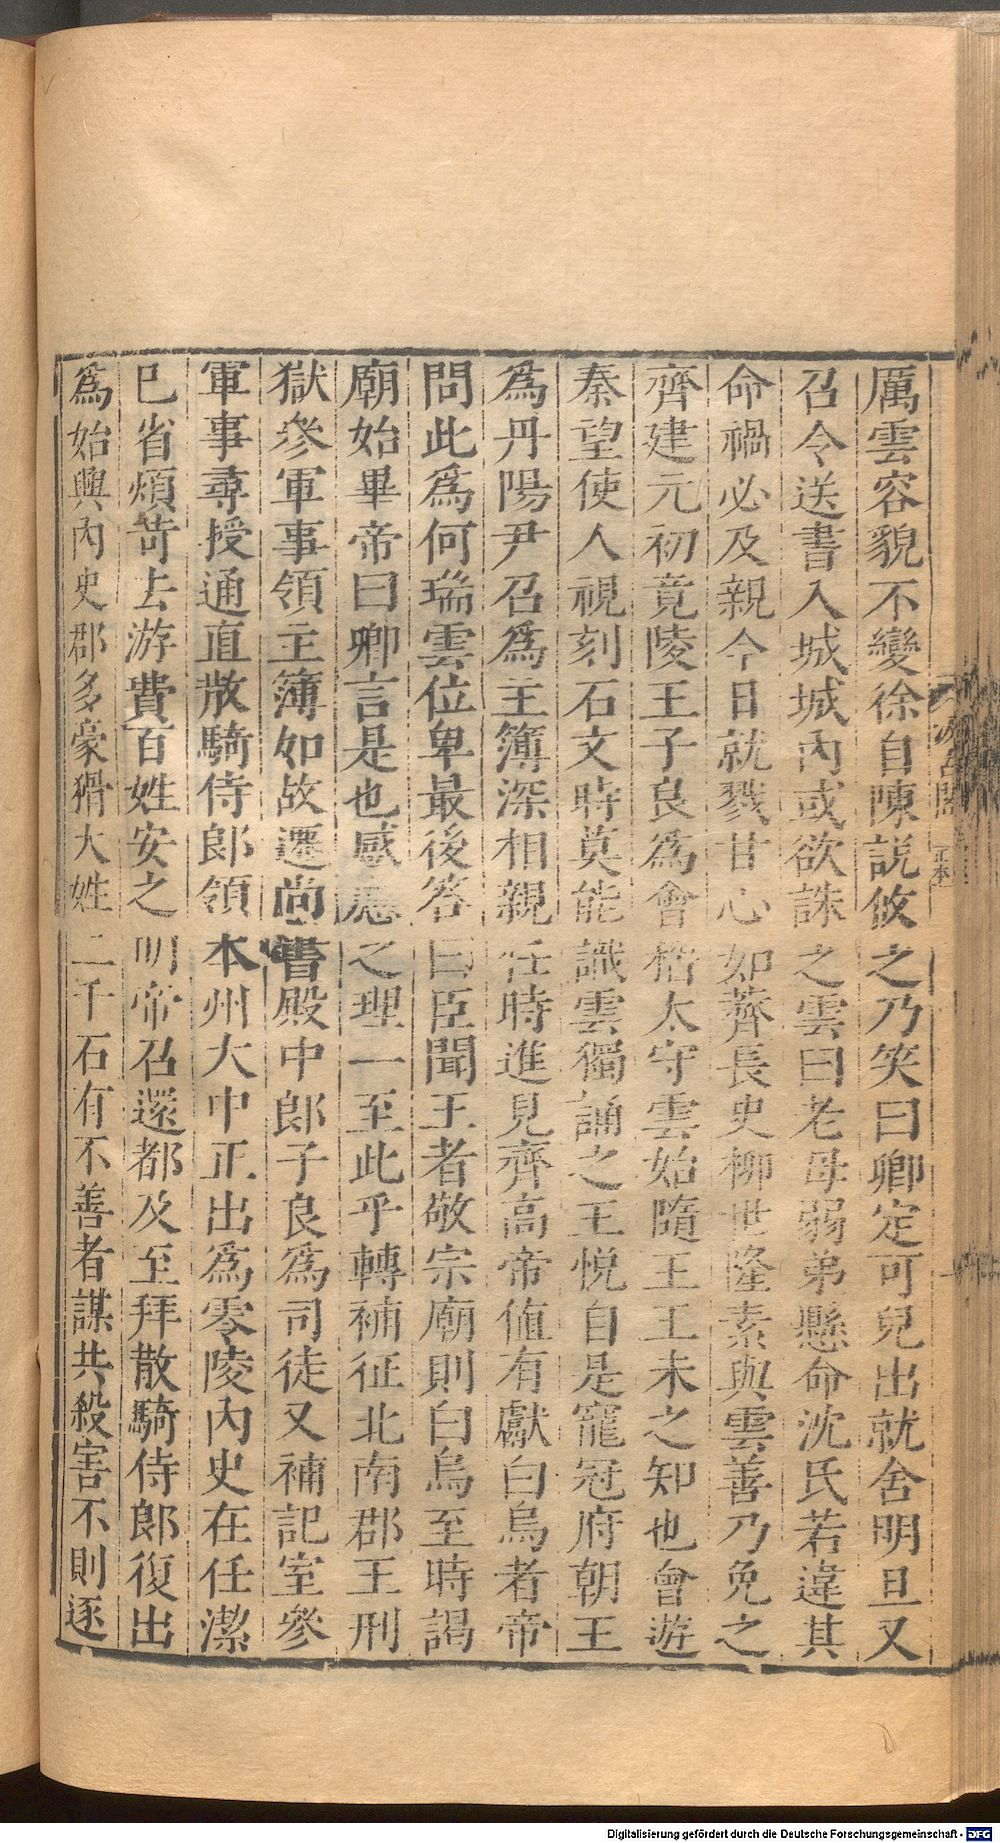 厲雲容貌不變徐自陳說攸之乃笑曰卿定可兒出就舍明旦又
召令送書入城城內或欲誅之雲曰老母弱弟懸命沈氏若違其
命禍必及親今日就戮甘心如薺長史柳世隆素與雲善乃免之
齊建元初竟陵王子良為會稽太守雲始隨王王未之知也會遊
秦望使人視刻石文時莫能識雲獨誦之王悅自是寵冠府朝王
為丹陽尹召為主簿深相親任時進見齊高帝值有獻白烏者帝
問此為何瑞雲位卑最後答曰臣聞王者敬宗廟則白烏至時謁
廟始畢帝曰卿言是也感應之理一至此乎轉補征北南郡王刑
獄參軍事領主簿如故遷尚書殿中郎子良為司徒又補記室參
軍事尋授通直散騎侍郎領本州大中正出為零陵內史在任潔
巳省煩苛去游費百姓安之明帝召還都及至拜散騎侍郎復出
為始興內史郡多豪猾大姓二千石有不善者謀共殺害不則逐
Digitalisierung gefördert durch die Deutsche Forschungsgemeinschaft - DFG